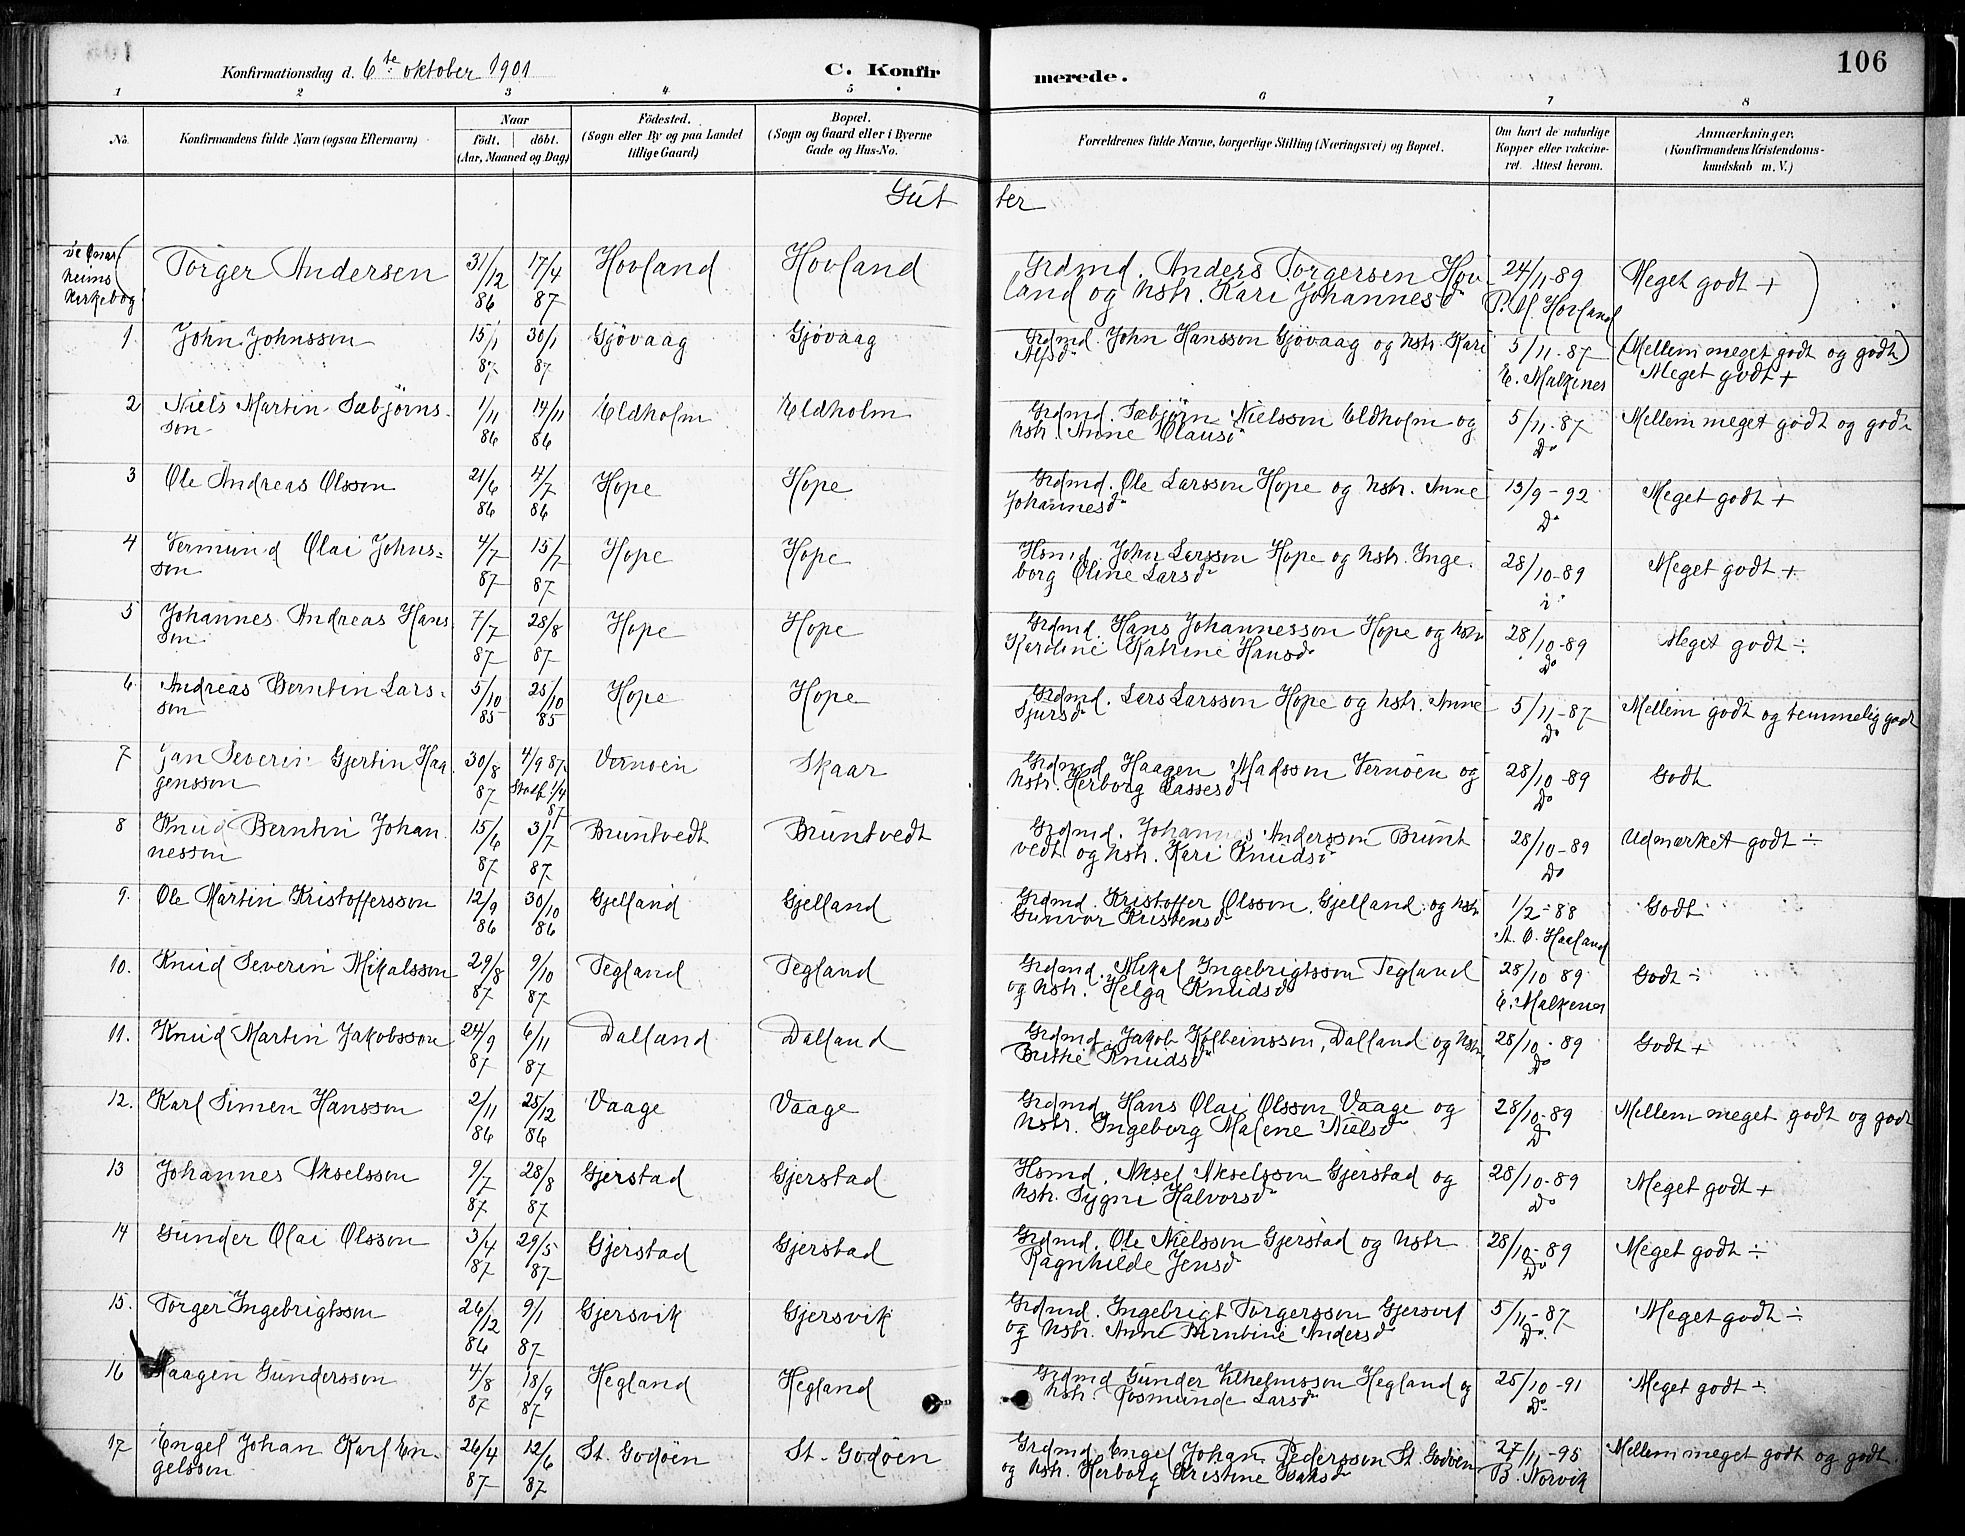 106
Konfirmationsdag d. 6te oktober 1901 C. Konfirmerede.
1 2 3 4 5 6 7 8
No. Konfirmandens fulde Navn (ogsaa Efternavn) Naar født. døbt. (Aar, Maaned og Dag) Fødested. (Sogn eller By og paa Landet tillige Gaard) Bopæl. (Sogn og Gaard eller i Byerne Gade og Hus-No. Forældrenes fulde Navne, borgerlige Stilling (Næringsvei) og Bopæl. Om havt de naturlige Kopper eller vakcineret. Attest herom. Anmærkninger. (Konfirmandens Kristendomskundskab m. V.)
Gutter
heims kirkebog Torger Andersen 31/12 86 17/4 87 Hovland Hovland Grdmd. Anders Torgersen Hovland og hstr. Kari Johannesd 24/11-89 P. M. Hovland Meget godt +
1 John Johnsson 15/1 87 30/1 87 Gjövaag Gjövaag Grdmd. John Hansson Gjövaag og hstr. Kari Alfsd 5/11-87 E. Malkenes (Mellem meget godt og godt) Meget godt +
2 Niels Martin Sæbjørnsson 1/11 86 14/11 86 Eldholm Eldholm Grdmd. Sæbjørn Nielsson Eldholm og hstr. Anne Clausd 5/11-87 Do Mellem meget godt og godt
3 Ole Andreas Olsson 21/6 86 4/7 86 Hope Hope Grdmd. Ole Larsson Hope og hstr. Anne Johannesd 13/9-92 Do Meget godt +
4 Vermund Olai Johnsson 4/7 87 15/7 87 Hope Hope Hsmd. John Larsson Hope og hstr. Ingeborg Oline Larsd 28/10-89 Meget godt +
5 Johannes Andreas Hansson 7/7 87 28/8 87 Hope Hope Grdmd. Hans Johannesson Hope og hstr Karoline Katrine Hansd 28/10-89 Do Meget godt ÷
6 Andreas Berntin Larsson 5/10 85 25/10 85 Hope Hope Grdmd. Lars Larsson Hope og hstr. Anne Sjursd 5/11-87 Do Mellem godt og temmelig godt
7 Jan Severin Gjertin Haagensson 30/8 87 4/9 87 Vernøen Skaar Grdmd Haagen Madsson Vernøen og hstr. Herborg Lassesd 28/10-89 Do Godt
8 Knud Berntin Johannesson 15/6 87 3/7 87 Bruntvedt Bruntvedt Grdmd. Johannes Andersson Bruntvedt og hstr. Kari Knudsd 28/10-89 Do Udmærket godt ÷
9. Ole Martin Kristoffersson 12/9 86 30/10 86 Gjelland Gjelland Grdmd. Kristoffer Olsson Gjelland og hstr Gunvor Kristensd 1/2-88 A. O. Haaland Godt
10. Knud Severin Mikalsson 29/8 87 9/10 87 Tegland Tegland Grdmd. Mikal Ingebrigtsson Tegland og hstr. Helga Knudsd 28/10 89 E. Malkenes Godt ÷
11. Knud Martin Jakobsson 24/9 87 6/11 87 Dalland Dalland Grdmd. Jakob Kolbeinsson, Dalland og hstr. Brithe Knudsd 28/10-89 Do Godt +
12. Karl Simen Hansson 2/11 86 25/12 86 Vaage Vaage Grdmd. Hans Olai Olsson Vaage og hstr. Ingeborg Malene Nielsd 28/10-89 Do Mellem meget godt og godt
13 Johannes Akselsson 9/7 87 28/8 87 Gjerstad Gjerstad Hsmd. Aksel Akselsson Gjerstad og hstr. Sygni Halvorsd 28/10-89 Do Meget godt +
14 Gunder Olai Olsson 3/4 87 29/5 87 Gjerstad Gjerstad Grdmd. Ole Nielsson Gjerstad og hstr Ragnhilde Jensd 28/10-89 Do Meget godt ÷
15. Torger Ingebrigtsson 26/12 86 9/1 87 Gjersvik Gjersvik Grdmd. Ingebrigt Torgersson Gjersvik og hstr. Anne Berntine Andersd 5/11-87 Do Meget godt ÷
16 Haagen Gundersson 4/8 87 18/9 87 Hegland Hegland Grdmd Gunder Vilhelmsson Hegland og hstr. Rosmunde Larsd 25/10-91 Do Meget godt ÷
17 Engel Johan Karl Engelsson 26/4 87 12/6 87 St. Godøen St. Godøen Grdmd. Engel Johan Pedersson St. Godøen og hstr. Herborg Kristine Isaksd 27/11-95 B. Norvik Mellem meget godt og godt.